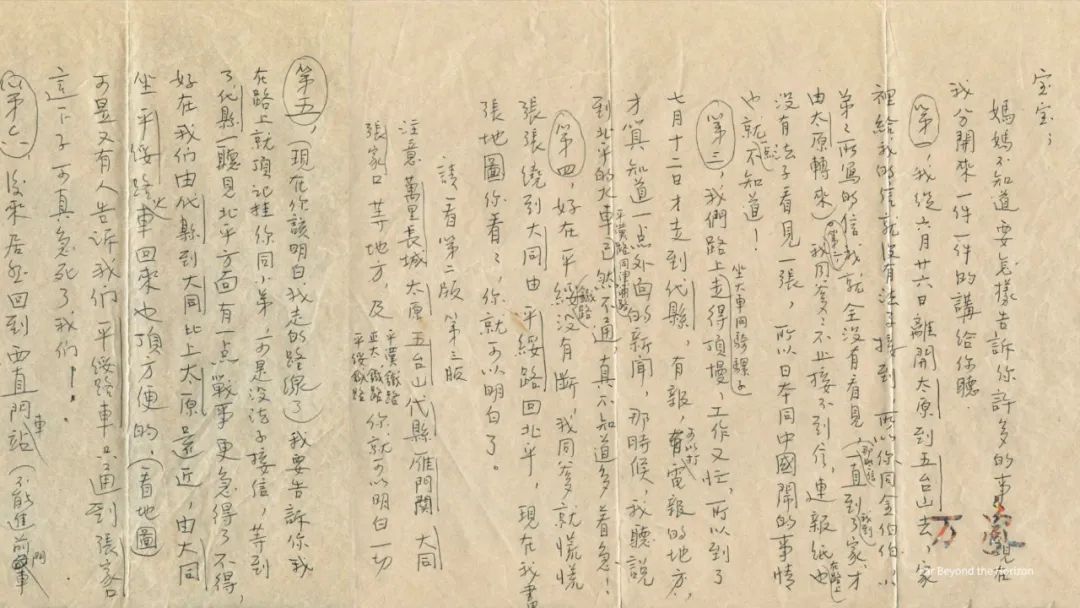 宝宝；
媽媽不知道要怎樣告訴你許多的事，現在
我分開來一件一件的講給你聽．
第一，我從六月廿六日離開太原到五台山去，家
裡給我的信就沒有法子接到，所以你同金伯伯、小
弟弟所寫的信我就全沒有看見（那些信一直到我到了家，才
由太原轉來）
第二，我同爹爹不止接不到信，連報紙也在路上
沒有法子看見一張，所以日本同中國鬧的事情
也就一點不知道！
第三，我們路上坐大車同騎騾子走得頂慢，工作又忙，所以到了
七月十二日才走到代縣，有報，可以打電報的地方，
才算知道一点外面的新聞，那時候，我聽說
到北平的火車，平漢路同津浦路已然不通，真不知道多着急！
第四，好在平綏鐵路沒有斷，我同爹爹就慌慌
張張繞到大同由平綏路回北平，現在我畫
張地圖你看看，你就可以明白了。
請看第二版 第三版
注意萬里長城 太原 五台山 代縣 雁門關 大同
張家口等地方，及
平漢鐵路
正太鐵路
平綏鐵路
你就可以明白一切
第五，（現在你該明白我走的路線了）我要告訴你我
在路上就頂記挂你同小弟，可是沒法子接信，等到
了代縣一聽見北平方面有一点戰事更急得了不得，
好在我們由代縣到大同比上太原還近，由大同
坐平綏路火車回來也頂方便的，（看地圖）
可是又有人告訴我們平綏路車只通到張家口
這下子可真急死了我們！
第六，後來居然回到西直門車站（不能進前門車
万象
Far Beyond the Horizon